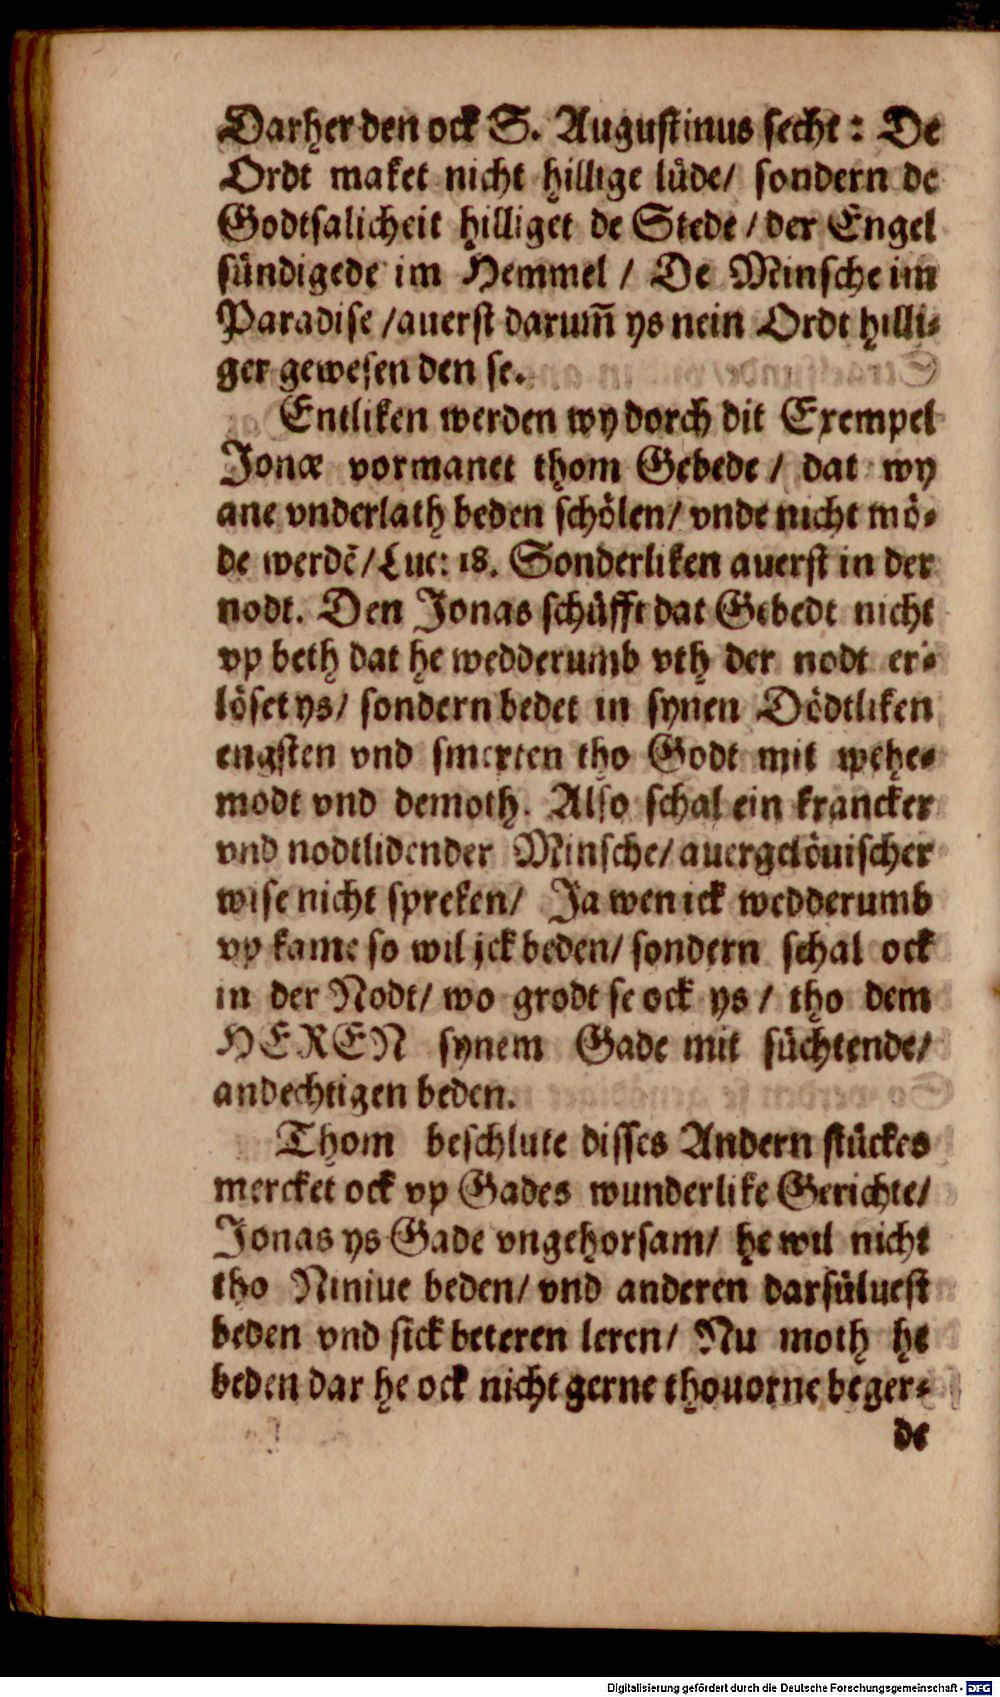 Darher den ock S. Augustinus secht: De
Ordt maket nicht hillige lüde/ sondern de
Godtsalicheit hilliget de Stede / der Engel
sündigede im Hemmel / De Minsche im
Paradise /auerst darum̃ ys nein Ordt hilli-
ger gewesen den se.
Entliken werden wy dorch dit Exempel
Jonæ vormanet thom Gebede / dat wy
ane vnderlath beden schölen/ vnde nicht mö-
de werdẽ/ Luc: 18. Sonderliken auerst in der
nodt. Den Jonas schüfft dat Gebedt nicht
vp beth dat he wedderumb vth der nodt er-
löset ys/ sondern bedet in synen Dödtliken
engsten vnd smerten tho Godt mit wehe-
modt vnd demoth. Also schal ein krancker
vnd nodtlidender Minsche/ auergelöuischer
wise nicht spreken/ Ja wen ick wedderumb
vp kame so wil jck beden/ sondern schal ock
in der Nodt/ wo grodt se ock ys / tho dem
HEREN synem Gade mit süchtende/
andechtigen beden.
Thom beschlute disses Andern stückes
mercket ock vp Gades wunderlike Gerichte/
Jonas ys Gade vngehorsam/ he wil nicht
tho Niniue beden/ vnd anderen darsüluest
beden vnd sick beteren leren/ Nu moth he
beden dar he ock nicht gerne thouorne beger-
de
Digitalisierung gefördert durch die Deutsche Forschungsgemeinschaft - DFG